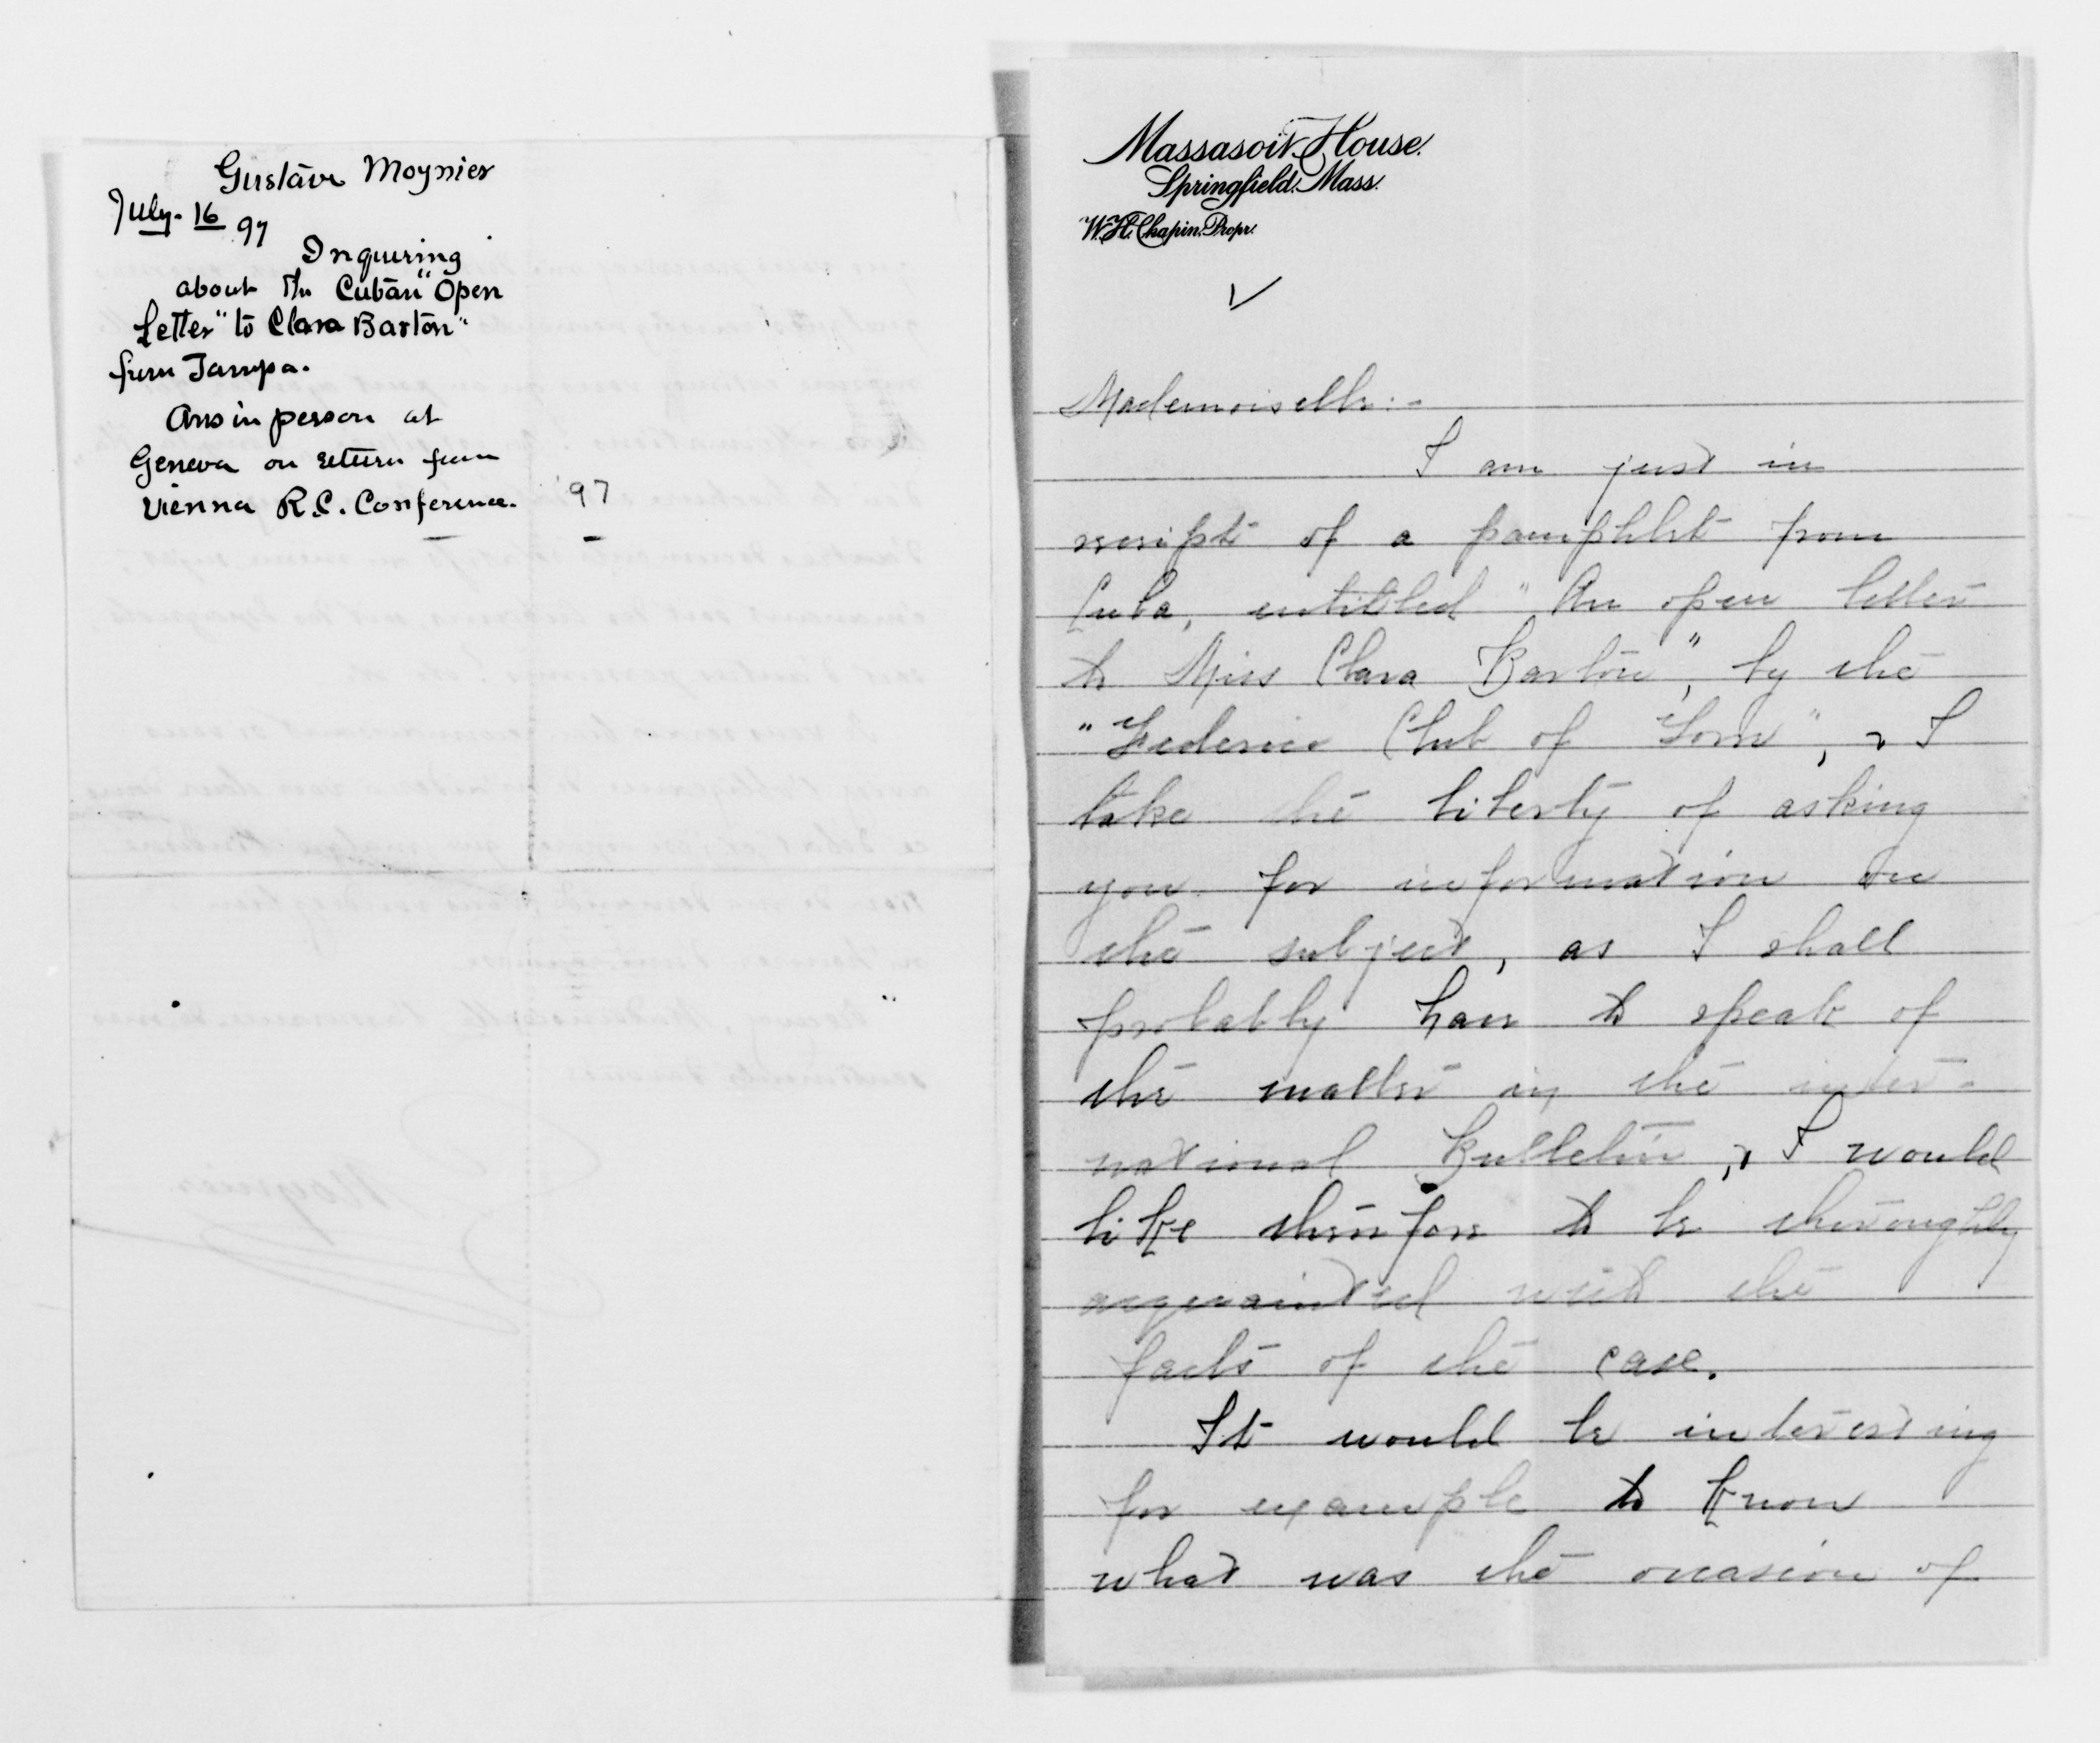 Gustave Moynier
July. 16 97
Inquiring
about the Cuban "Open
Letter" to Clara Barton"
from Tampa.
Ans in person at
Geneva on return from
Vienna R.C. Conference. '97
Massasoit House.
Springfield. Mass.
W. H. Chapin. Propr.
Mademoiselle:-
I am just in
receipt of a pamphlet from
Cuba, entitled "An open letter
to Miss Clara Barton", by the
"Federico Club of", & I
take the liberty of asking
you for information on
the subject, as I shall
probably have to speak of
the matter in the inter-
national Bulletin, & I would
like therefore to be thoroughly
acquainted with the
facts of the case.
It would be interesting
for example to know
what was the occasion of